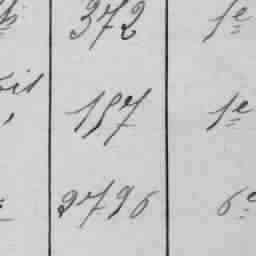 372 1e
157 1e
2796 6e